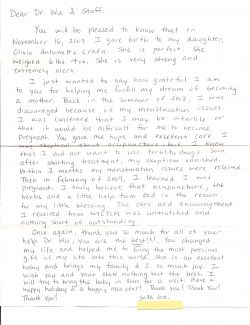 Dear Dr. Wu & Staff,
You will be pleased to know that on
November 16, 2009 I gave birth to my daughter,
Olivia Antonette. She is perfect. She
weighed 6 lbs. She is very strong and
extremely alert.
I just wanted to say how grateful I am
to you for helping me fulfill my dream of becoming
a mother. Back in the Summer of 2008, I was
discouraged because of my menstruation issues.
I was concerned that I may be infertile or
that it would be difficult for me to become
pregnant. You gave me hope and excellent care. I
was skeptical about acupuncture
that I did not want to use fertility drugs. Soon
after starting treatment, my skepticism vanished.
Within 2 months my menstruation issues were
Then in February of 2009, I learned I was
pregnant. I truly believe that acupuncture, the
herbs and a little help from God is the reason
for my little blessing. The care and encouragement
I received from was unmatched and
nothing short of outstanding.
Once again, thank you so much for all of your
help. Dr. Wu, you are the best!!! You changed
my life and helped me to bring the most precious
gift of my life into this world. She is an excellent
baby and brings my family & I so much joy. I
wish you and your staff nothing but the best. I
will try to bring the baby in soon for a visit. Have a
happy holiday & a happy new year! Thank you! Thank You!
Thank You!